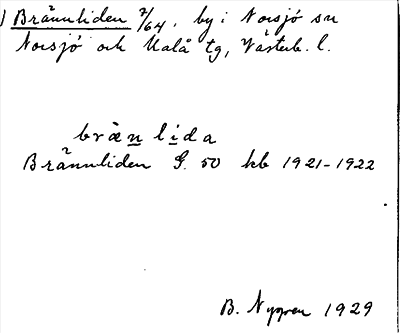 ) Brännliden 7/64, by i Norsjö sn
Norsjö och Malå tg, Västerb. l.
bräṉ li̱da
Brännliden G. 50 kb 1921-1922
B. Nygren 1929